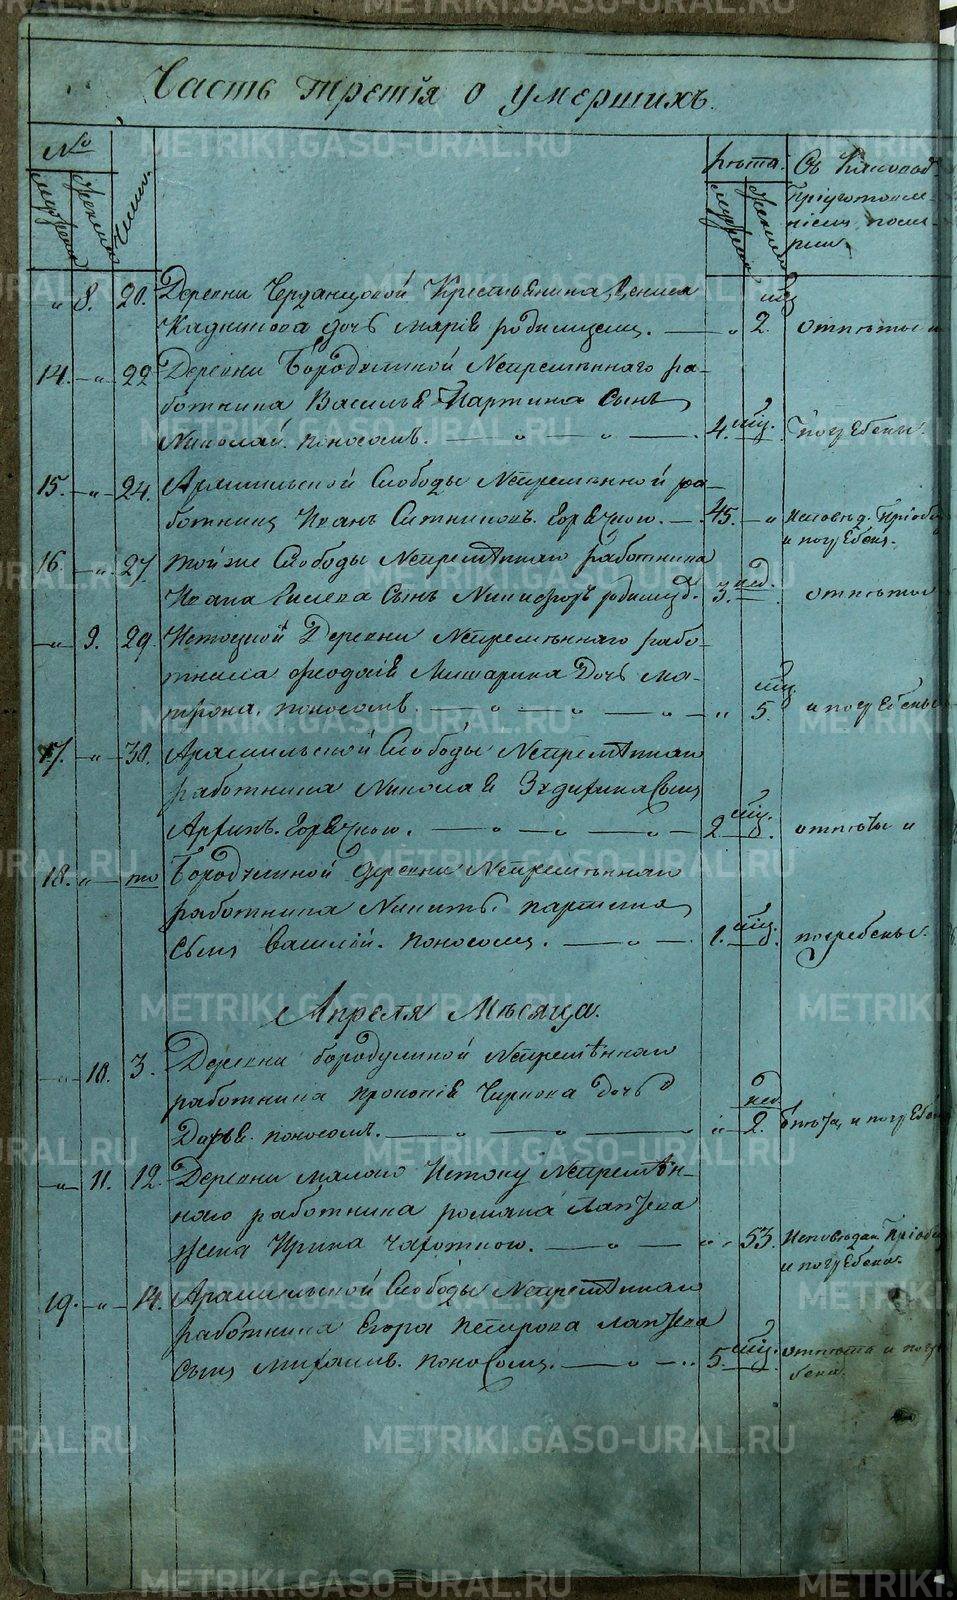 Часть третія о умершихъ.
№
Лѣта.
Съ какою
мужеска
женска
Числа.
мужеска
женска
пріуготовле-
ніемъ поме-
рши.
" 8. 20. Деревни Черданцовой Крестьянина
Кадникова дочь Марія родимцемъ. — " 2. отпѣты и
мѣс.
14. " 22 Деревни Бородулиной Непремѣннаго ра-
ботника Василья Партина Сынъ
Николай. поносомъ. — " — " — 4. мѣс. погребены.
15. " 24. Арамильской Слободы Непременной ра-
ботникъ Иванъ Ситниковъ. горячкою. — 45. — " исповѣд. Пріобщ
и погребенъ.
16. " 27. той же Слободы Непремѣннаго работника
Ивана Сынъ Никифоръ 3. нед. отпѣты
" 9. 29. Истоцкой Деревни Непремѣннаго рабо-
тника Феодосія Мишарина Дочь Ма-
мѣс.
трона. поносомъ. — " — " — " — " 5. и погребены
17. " 30. Арамильской Слободы Непремѣннаго
работника Николая Сынъ
горячкою. — " — " — " — 2. мѣс. отпѣты и
18. " то Бородулиной деревни Непремѣннаго
работника Никиты партина
Сынъ Василій. поносомъ. — " — 1. мѣс. погребены.
Апреля Мѣсяца.
" 10. 3. Деревни бородулиной Непремѣннаго
работника прокопія Чиркова дочь
нед
Дарья. поносомъ. — " — " — " — " 2. и погребен
" 11. 12. Деревни малого Истоку Непремѣн-
наго работника романа Лаптева
жена Ирина чахоткою. — " — " " 53. Исповѣдан Пріобщ
и погребена.
19. " 14. Арамильской Слободы Непремѣннаго
работника Егора петрова лаптева
Сынъ Михаилъ. поносомъ. — " — " 5. мѣс. отпѣта и погр
бена.
METRIKI.GASO-URAL.RU